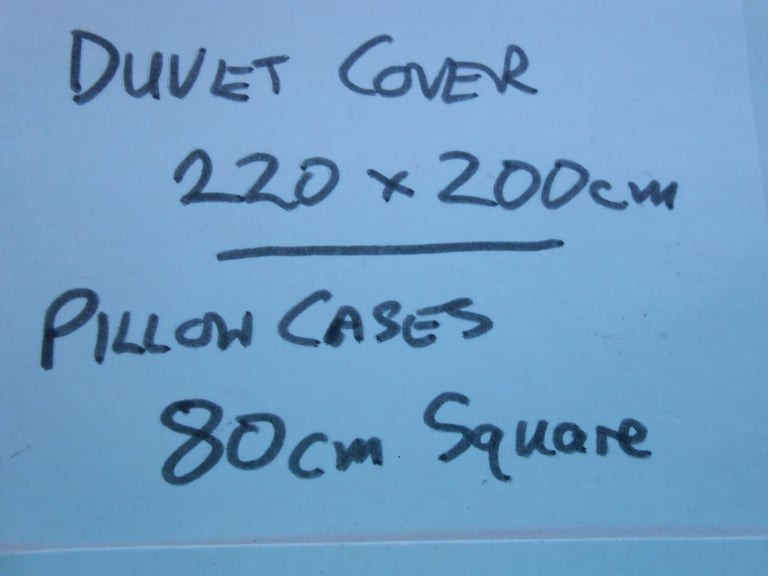 DUVET COVER
220 x 200cm
PILLOW CASES
80cm Square